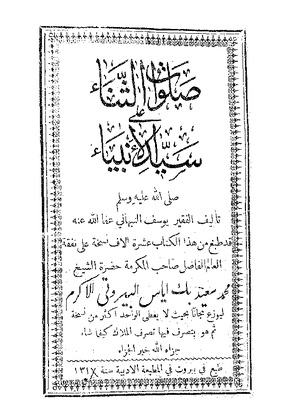 صلوات الثناء
على
سيد الأنبياء
صلى الله عليه وسلم
تأليف الفقير يوسف النبهاني عفا الله عنه
قد طبع من هذا الكتاب عشرة الاف نسخة على نفقة
العالم الفاضل صاحب المكرمة حضرة الشيخ
محمد سعيد بك اياس البيروتي الاكرم
ليوزع مجانا بحيث لا يعطى الواحد اكثر من نسخة
ثم هو يتصرف فيها تصرف الملاك كيفما شاء
جزاه الله خير الجزاء
طبع في بيروت في المطبعة الادبية سنة ١٣١٧